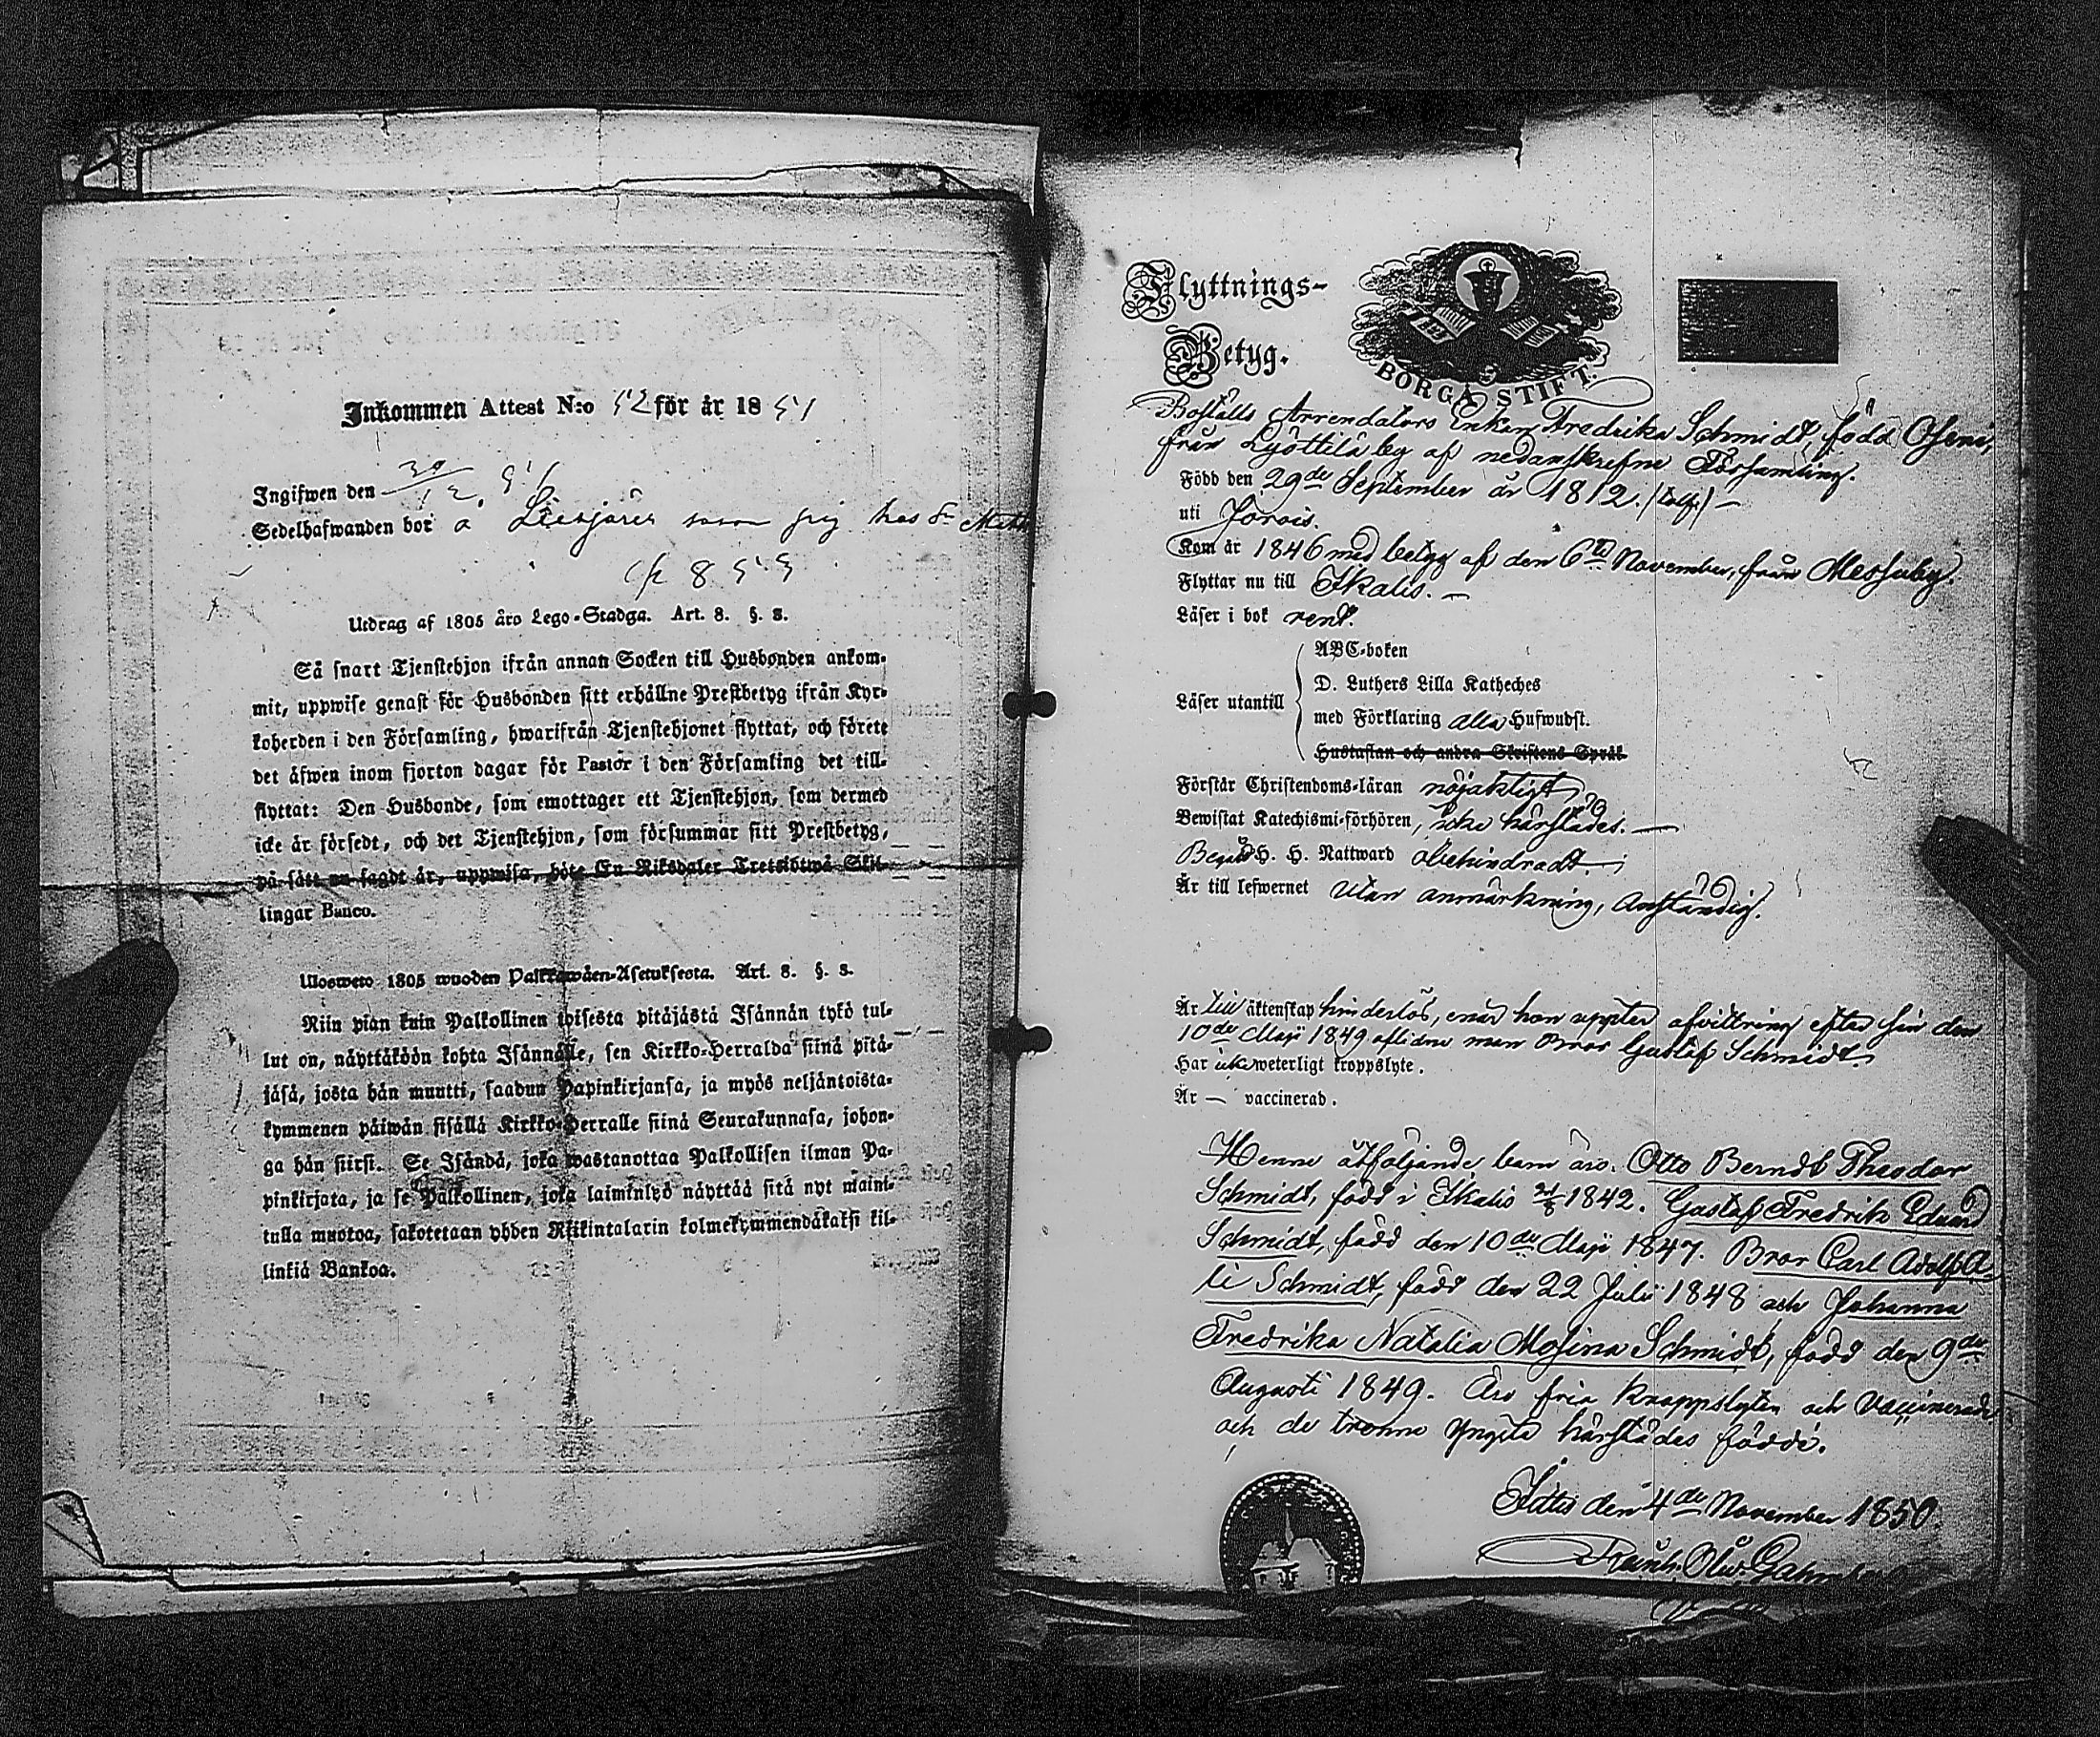 Inkommen Attest N:o 52 för år 1851
Ingifwen den 30/12 51
Sedelhafwanden bor å
853
Utdrag af 1805 års Lego-Stadga. Art. 8. §. 3.
Så snart Tjenstehjon ifrån annan Socken till Husbonden ankom-
mit, uppwise genast för Husbonden sitt erhållne Prestbetyg ifrån Kyr-
koherden i den Församling, hwarifrån Tjenstehjonet flyttat, och förete
det äfwen inom fjorton dagar för Pastor i den Församling det till-
flyttat: Den Husbonde, som emottager ett Tjenstehjon, som dermed
icke är försedt, och det Tjenstehjon, som försummar sitt Prestbetyg,
på sätt nu sagdt är, uppwisa, böte En Riksdaler Tretiotwå Skil-
lingar Banco.
Ulosweto 1805 wuoden Palkkawäen-Asetuksesta. Art. 8. §. 3.
Niin pian kuin Palkollinen toisesta pitäjästä Isännän tykö tul-
lut on, näyttäköön kohta Isännälle, sen Kirkko-Herralda siinä pitä-
jäsä, josta hän muutti, saadun Papinkirjansa, ja myös neljäntoista-
kymmenen päiwän sisällä Kirkko-Herralle siinä Seurakunnasa, johon-
ga hän siirsi. Se Isändä, joka wastanottaa Palkollisen ilman Pa-
pinkirjata, ja se Palkollinen, joka laiminlyö näyttää sitä nyt maini-
tulla muotoa, sakotetaan yhden Riikintalarin kolmekymmendäkaksi kil-
linkiä Bankoa.
Flyttnings-
Betyg.
BORGÅ STIFT.
Boställs Arrendators Enkan Fredrika Schmidt, född
från by af nedanskrefne Församling.
Född den 29de September år 1812. (tolf) —
uti Jorois.
Kom år 1846 med betyg af den 6te November, från Messuby.
Flyttar nu till Ikalis. —
Läser i bok rent.
Läser utantill
ABC-boken
D. Luthers Lilla Katheches
med Förklaring alla Hufwudst.
Hustaflan och andra Skriftens Språk
Förstår Christendoms-läran nöjaktigt,
Bewistat Katechismi-förhören, icke härstädes. —
Begått H. H. Nattward obehindradt. —
Är till lefwernet utan anmärkning, anständig.
Är till äktenskap hinderlös, enär hon upptet afvittring efter sin den
10de Maji 1849 aflidne man Bror Gustaf Schmidt.
Har icke weterligt kroppslyte.
Är — vaccinerad.
Henne åtföljande barn äro: Otto Berndt Theodor
Schmidt, född i Ikalis 1842. Gustaf Fredrik Eduard
Schmidt, född den 10de Maji 1847. Bror Carl Adolf A-
li Schmidt, född den 22 Julii 1848 och Johanna
Fredrika Natalia Mosina Schmidt, född den 9de
Augusti 1849. Äro fria kroppslyten och vaccinerade
och de trenne yngsta härstädes födde.
Iittis den 4de November 1850